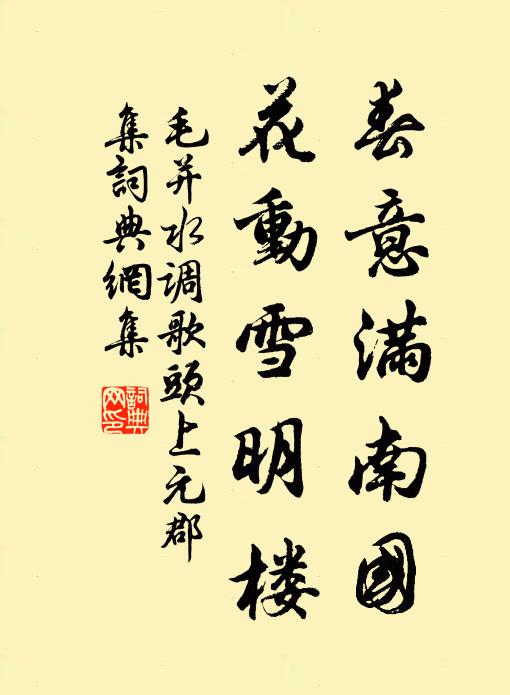 春意满南國
花動雪明楼
毛并水调歌頭上元郡
集詞典網集
詞典网印